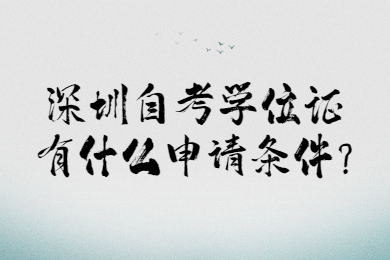 深圳自考学位证
有什么申请条件?